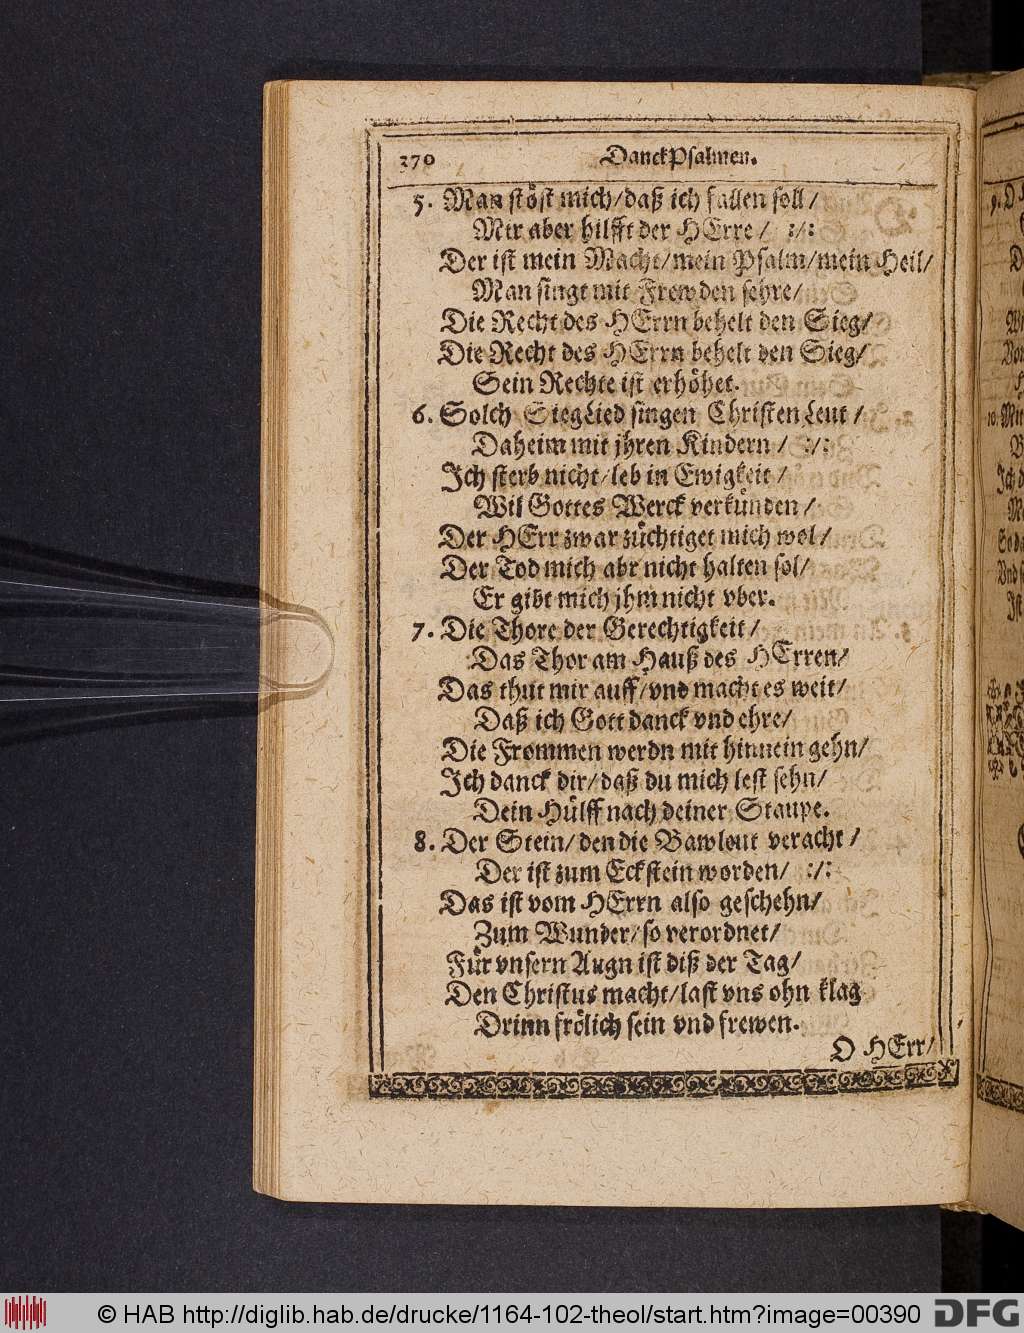 370 DanckPsalmen.
5. Man stöst mich/daß ich fallen soll/
Mir aber hilfft der HErre/ :/:
Der ist mein Macht/mein Psalm/mein Heil/
Man singt mit Frewden sehre/
Die Recht des HErrn behelt den Sieg/
Die Recht des HErrn behelt den Sieg/
Sein Rechte ist erhöhet.
6. Solch SiegLied singen Christen Leut/
Daheim mit jhren Kindern/ :/:
Ich sterb nicht/leb in Ewigkeit/
Wil Gottes Werck verkünden/
Der HErr zwar züchtiget mich wol/
Der Tod mich abr nicht halten sol/
Er gibt mich jhm nicht vber.
7. Die Thore der Gerechtigkeit/
Das Thor am Hauß des HErren/
Das thut mir auff/vnd macht es weit/
Daß ich Gott danck vnd ehre/
Die Frommen werdn mit hinnein gehn/
Ich danck dir/daß du mich lest sehn/
Dein Hülff nach deiner Staupe.
8. Der Stein/den die Bawleut veracht/
Der ist zum Eckstein worden/ :/:
Das ist vom HErrn also geschehn/
Zum Wunder/so verordnet/
Für vnsern Augn ist diß der Tag/
Den Christus macht/last vns ohn klag
Drinn frölich sein vnd frewen.
O HErr/
© HAB http://diglib.hab.de/drucke/1164-102-theol/start.htm?image=00390
DFG